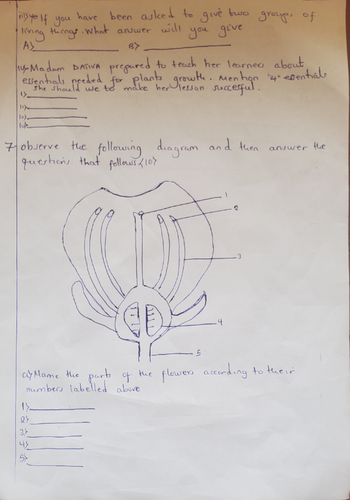 iii) If you have been asked to give two groups of
living things. What answer will you give
A) B)
iv) Madam DATIVA prepared to teach her learners about
essentials needed for plants growth. Mention "4" essentials
she should use to make her lesson succesful.
i)
ii)
iii)
iv)
7 observe the following diagram and then answer the
questions that follows (10)
1
2
3
4
5
a) Name the parts of the flowers according to their
numbers labelled above
1)
2)
3)
4)
5)